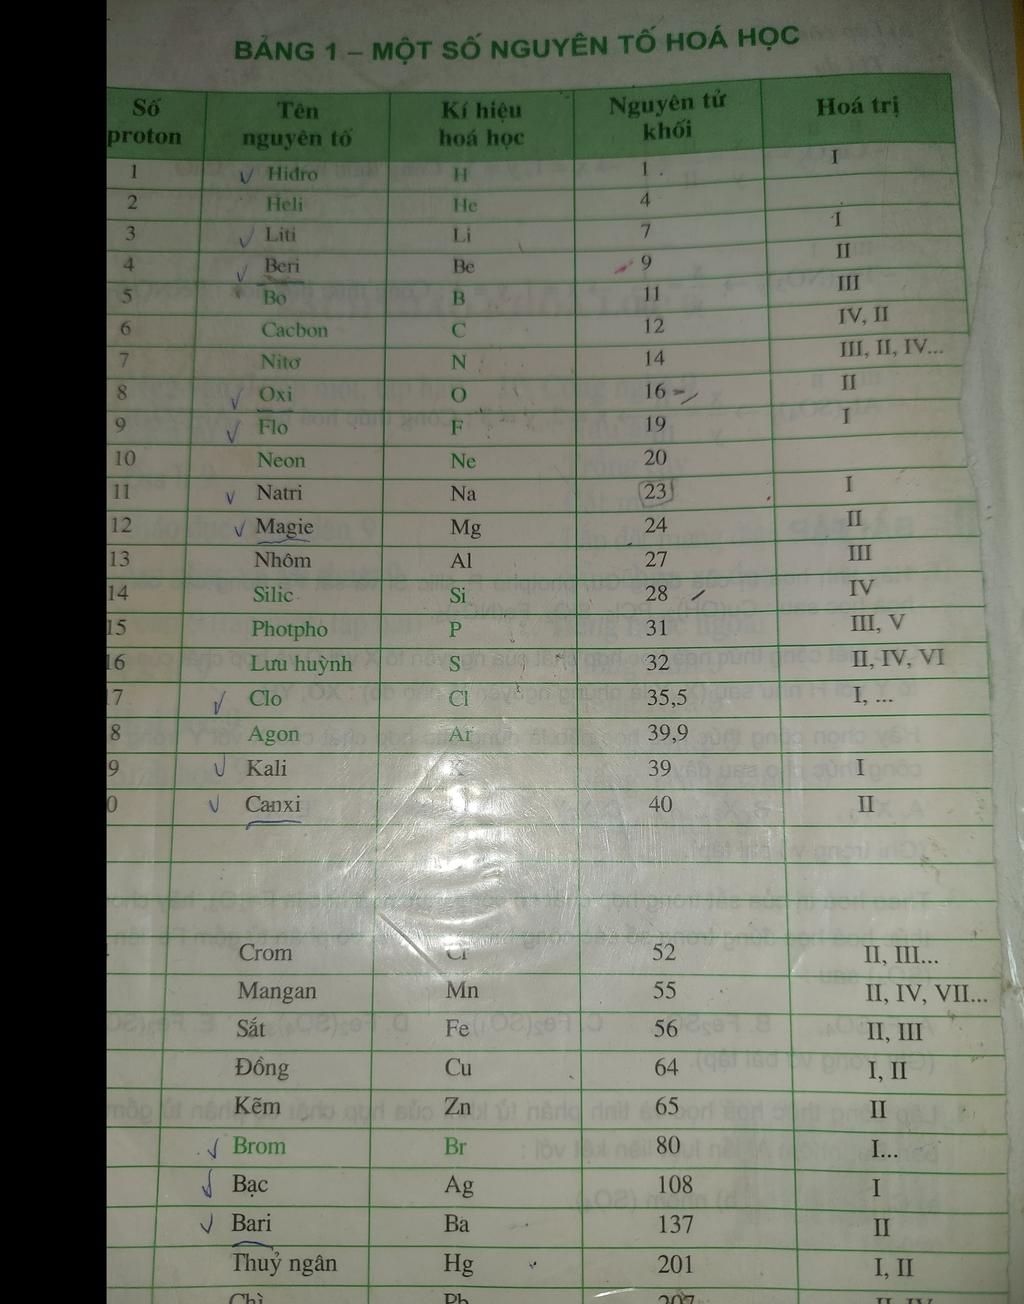 BẢNG 1 – MỘT SỐ NGUYÊN TỐ HOÁ HỌC
Số proton Tên nguyên tố Kí hiệu hoá học Nguyên tử khối Hoá trị
1 Hiđro H 1 I
2 Heli He 4
3 Liti Li 7 I
4 Beri Be 9 II
5 Bo B 11 III
6 Cacbon C 12 IV, II
7 Nitơ N 14 III, II, IV...
8 Oxi O 16 II
9 Flo F 19 I
10 Neon Ne 20
11 Natri Na 23 I
12 Magie Mg 24 II
13 Nhôm Al 27 III
14 Silic Si 28 IV
15 Photpho P 31 III, V
16 Lưu huỳnh S 32 II, IV, VI
17 Clo Cl 35,5 I, ...
8 Agon Ar 39,9
9 Kali K 39 I
0 Canxi 40 II
Crom Cr 52 II, III...
Mangan Mn 55 II, IV, VII...
Sắt Fe 56 II, III
Đồng Cu 64 I, II
Kẽm Zn 65 II
Brom Br 80 I...
Bạc Ag 108 I
Bari Ba 137 II
Thuỷ ngân Hg 201 I, II
Chì Pb 207 II, IV